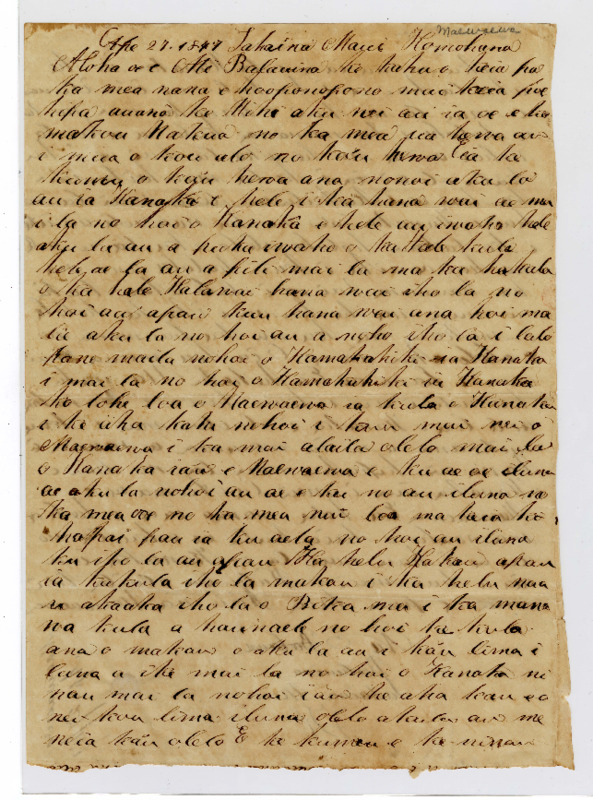 Maewaewa
Ape 27. 1847 Lahaina Maui Komohana
Aloha oe e Ali Balauina ke kahu o keia pa
ka mea nana e hooponopono mai keia poe
hipa auanei ke Mihi aku nei au ia oe e ko
makou Makua no ka mea ua hewa au
i mua o kou alo no ka'u hewa Eia ke
kumu o ka'u hewa ana nonoi aku la
au ia Kanaka e hele i ka hana wai ae mai
i la no hoi o Kanaka e hele au iwaho hele
aku la au a puka iwaho o ka hale kula
hele ae la au a pili mai la ma ke kukulu
o ka hale Halawai hana wai iho la no
hoi au apau kuu hana wai ana hoi ma
lie aku la no hoi au a noho iho la i lalo
pane maila nohoi o Kamakahiki ia Kanaka
i mai la no hoi o Kamakahiki ia Kanaka
ko lohi loa o Maewaewa ia kula o Kanaka
i ke aha kahi nohoi i kau mai nei o
Maewaewa i ka mai alaila olelo mai la
o Kanaka iau e Maewaewa e ku ae oe iluna
ae aku la nohoi au ae e ku no au iluna no
ka mea ooe no ka mea nui loa ma keia ko
hapai pau ia ku aela no hoi au iluna
ku iho la au apau ka helu Kakau apau
ia kukula iho la makou i ka helu naau
u akaaka iho la o Bika ma i ka mana
wa kula a haunaele no hoi ke kula
ana o makou o aku la au i ka'u lima i
luna a ike mai la no hoi o Kanaka ni
nau mai la nohoi iau he aha kau e o
nei kou lima iluna olelo akula au me
neia ka'u olelo E ke kumu e ke ninau